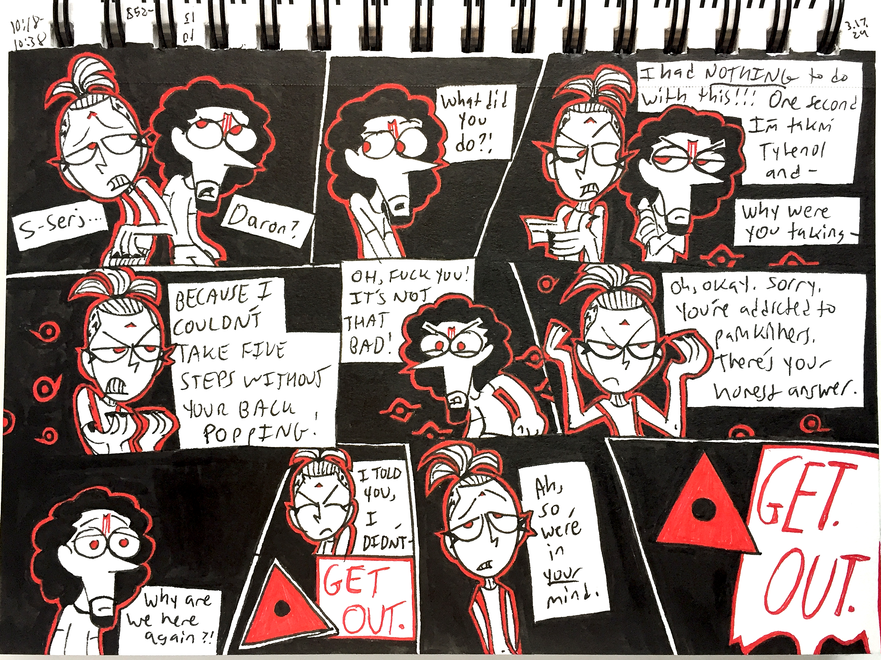 10:18-
10:38
852-
3.17.
24
S-Serj...
Daron?
What did
you
do?!
I had NOTHING to do
with this!!! One second
I'm takin'
Tylenol
and-
Why were
you talking-
BECAUSE I
COULDN'T
TAKE FIVE
STEPS WITHOUT
YOUR BACK
POPPING!
OH, FUCK YOU!
IT'S NOT
THAT
BAD!
Oh, okay. Sorry.
You're addicted to
painkillers.
There's your
honest answer.
Why are
we here
again?!
I TOLD
YOU,
I
DIDN'T-
GET
OUT.
Ah,
so,
we're
in
your
mind.
GET.
OUT.